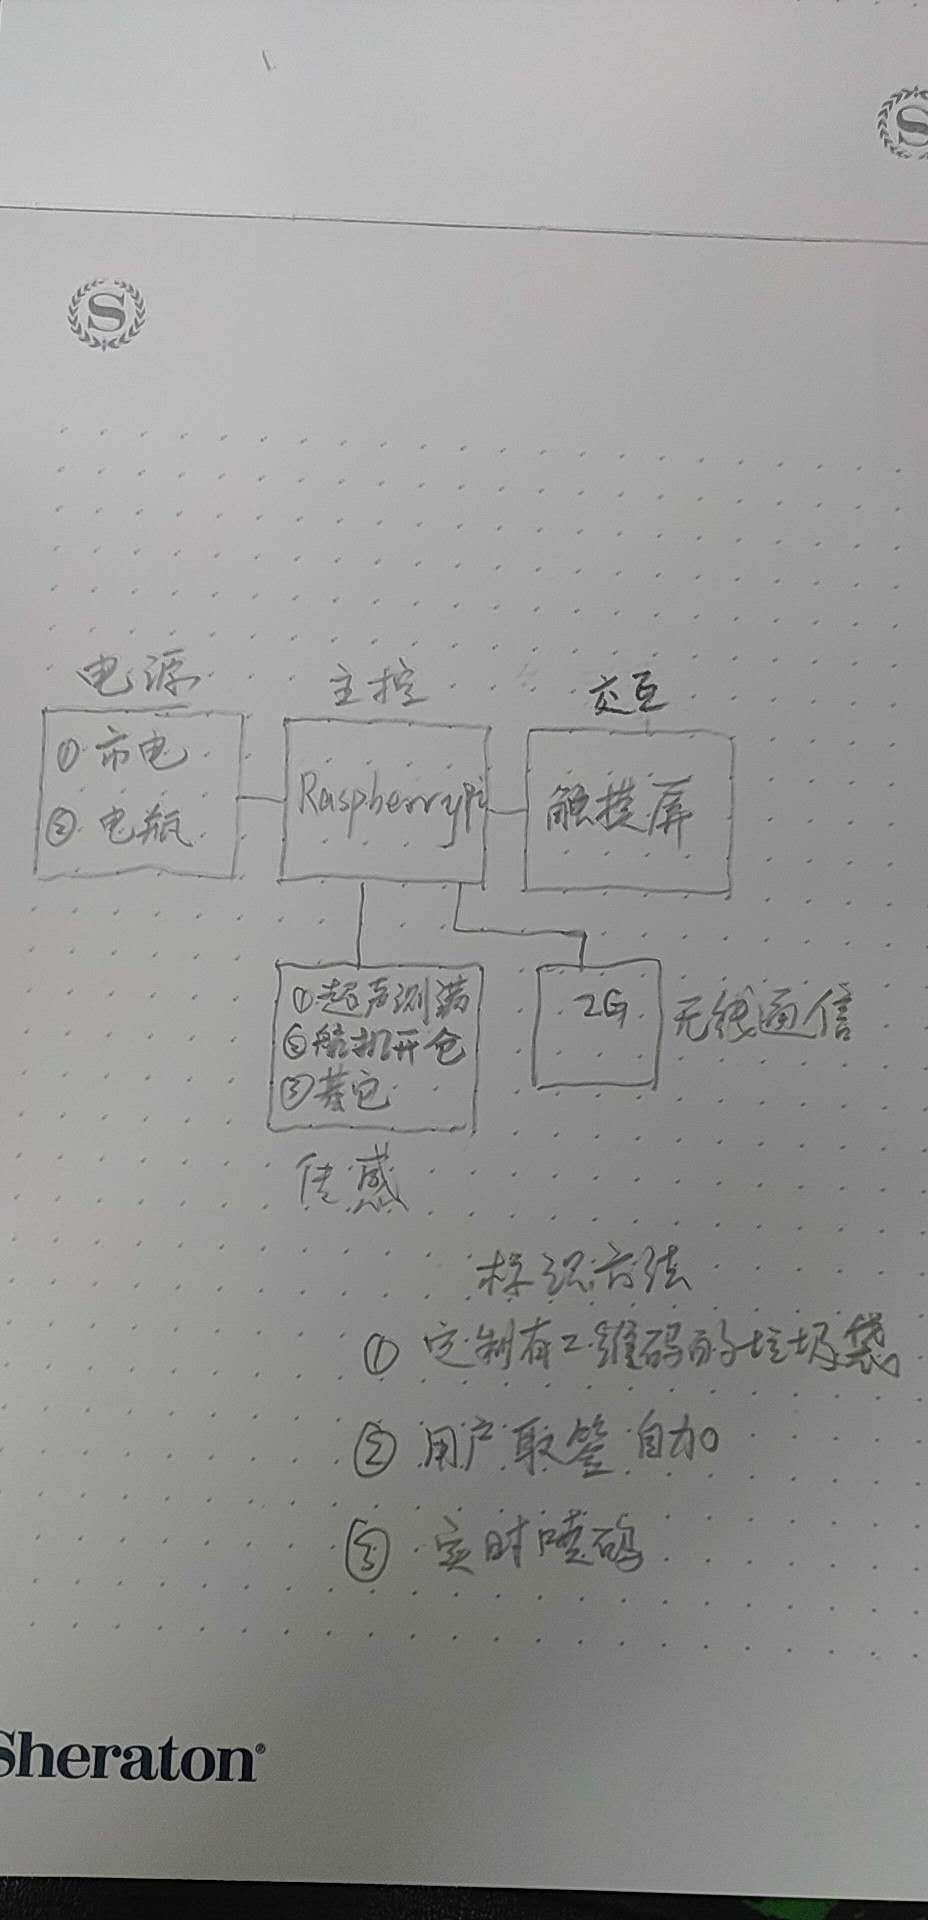 S
S
电源
主控
交互
①市电
②电瓶
RaspberryPi
触摸屏
①超声测满
②舵机开仓
③其它
2G
无线通信
传感
标识方法
① 定制有二维码的垃圾袋
② 用户取签自加
③ 实时喷码
Sheraton®